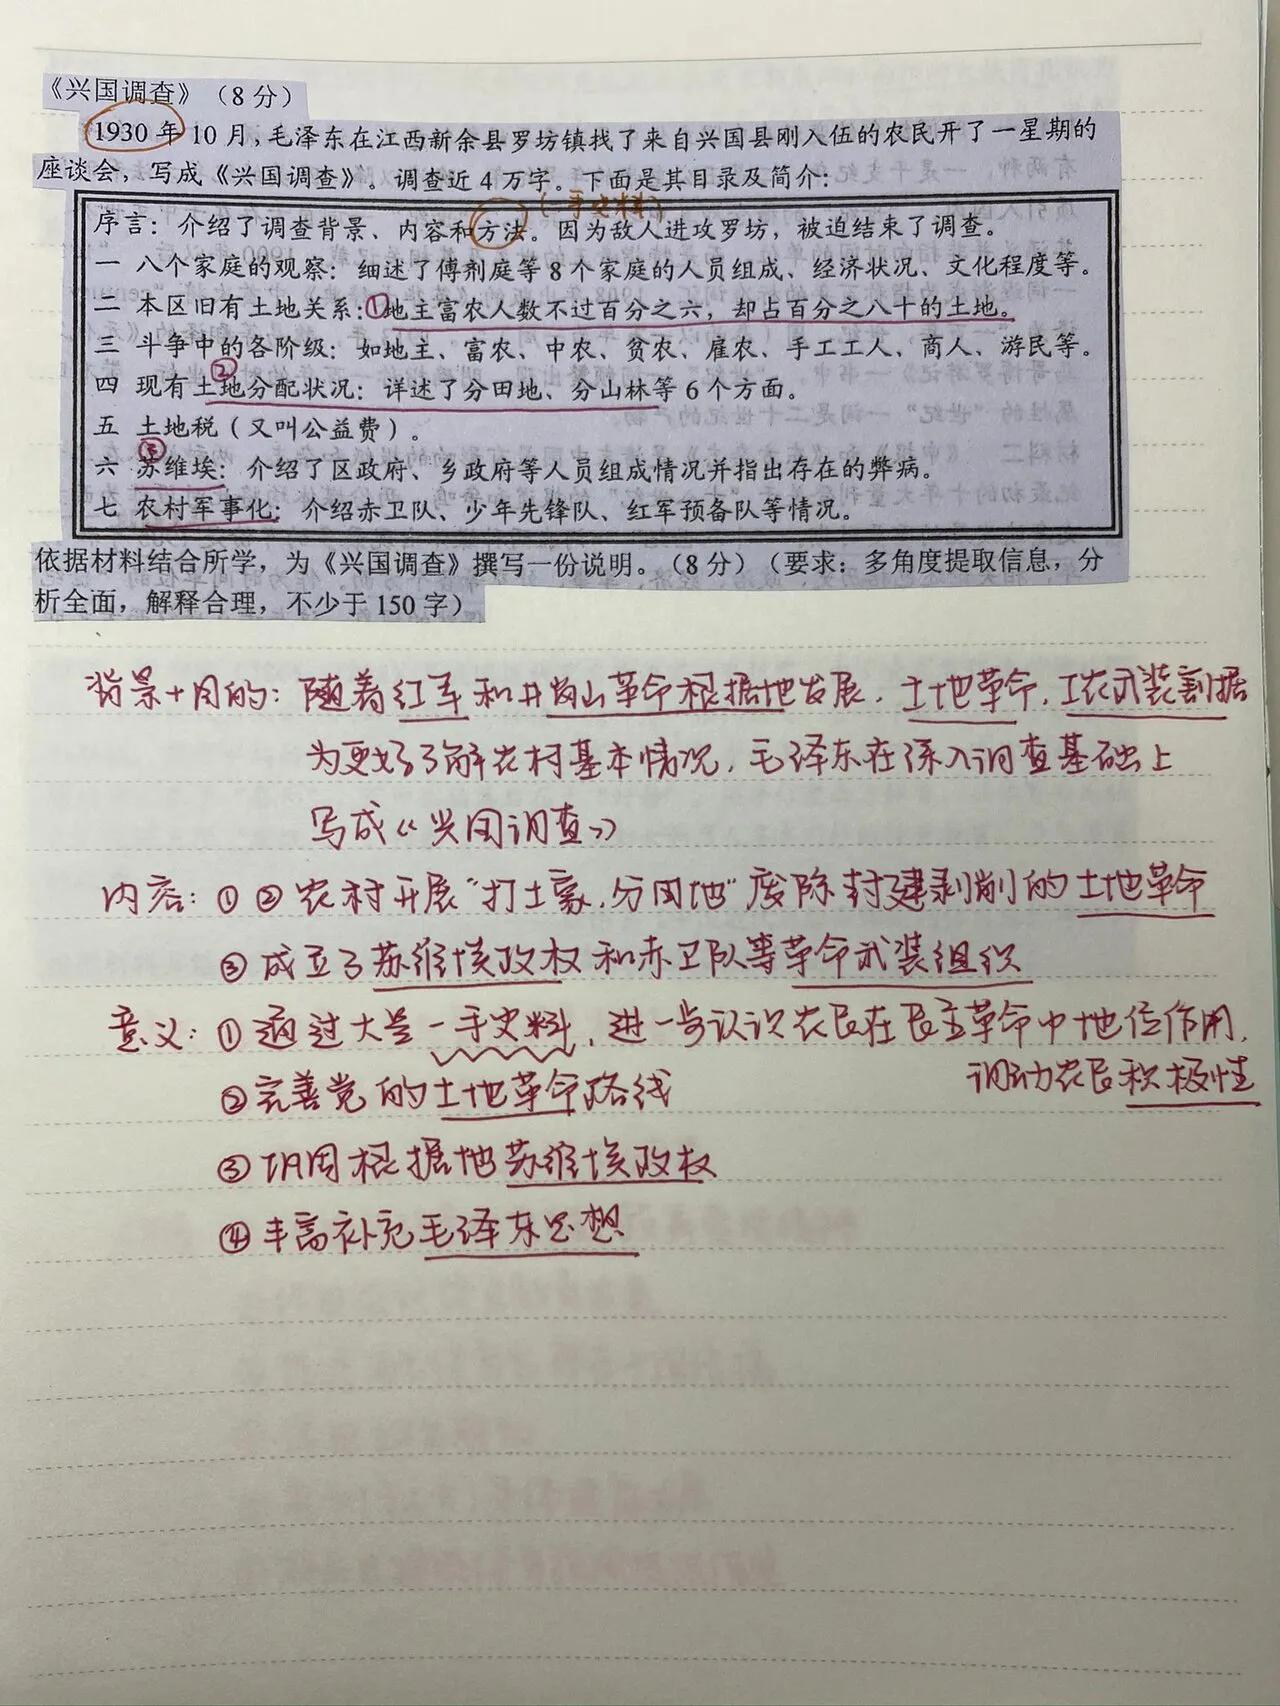 《兴国调查》（8分）
1930年10月,毛泽东在江西新余县罗坊镇找了来自兴国县刚入伍的农民开了一星期的
座谈会，写成《兴国调查》。调查近4万字。下面是其目录及简介：
(一手史料)
序言：介绍了调查背景、内容和方法。因为敌人进攻罗坊，被迫结束了调查。
一 八个家庭的观察：细述了傅剂庭等8个家庭的人员组成、经济状况、文化程度等。
二 本区旧有土地关系:①地主富农人数不过百分之六，却占百分之八十的土地。
三 斗争中的各阶级：如地主、富农、中农、贫农、雇农、手工工人、商人、游民等。
②
四 现有土地分配状况：详述了分田地、分山林等6个方面。
五 土地税（又叫公益费）。
③
六 苏维埃：介绍了区政府、乡政府等人员组成情况并指出存在的弊病。
七 农村军事化：介绍赤卫队、少年先锋队、红军预备队等情况。
依据材料结合所学，为《兴国调查》撰写一份说明。（8分）（要求：多角度提取信息，分
析全面，解释合理，不少于150字）
背景+目的：随着红军和井岗山革命根据地发展，土地革命，工农武装割据
为更好了解农村基本情况，毛泽东在深入调查基础上
写成《兴国调查》
内容：①②农村开展“打土豪，分田地”废除封建剥削的土地革命
③成立了苏维埃政权和赤卫队等革命武装组织
意义：①通过大量一手史料，进一步认识农民在民主革命中地位作用，
调动农民积极性
②完善党的土地革命路线
③巩固根据地苏维埃政权
④丰富补充毛泽东思想